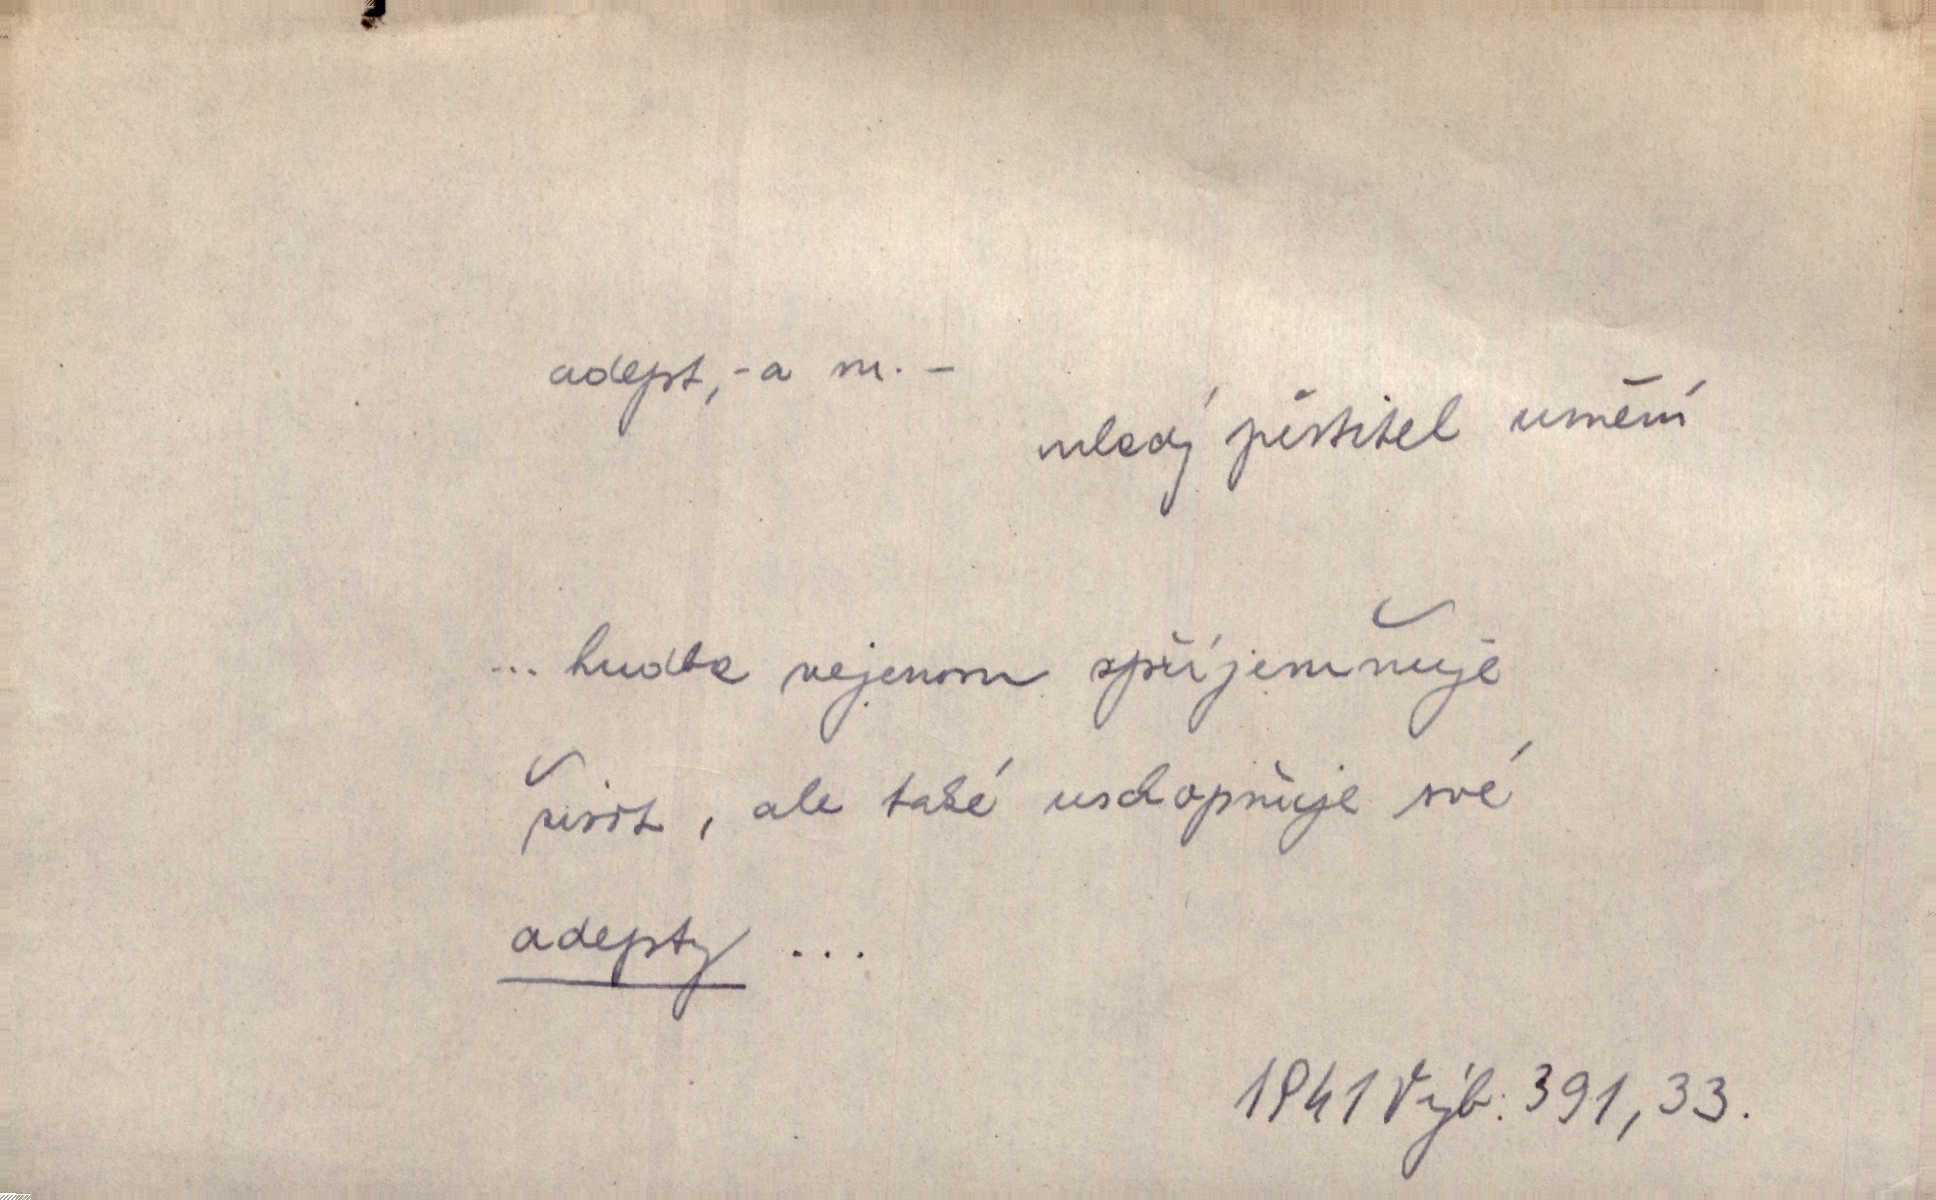 adept, -a m. –
mladý pěstitel umění
... hudba nejenom zpříjemňuje
život, ale také uschopňuje své
adepty ...
1941 Výb. 391, 33.